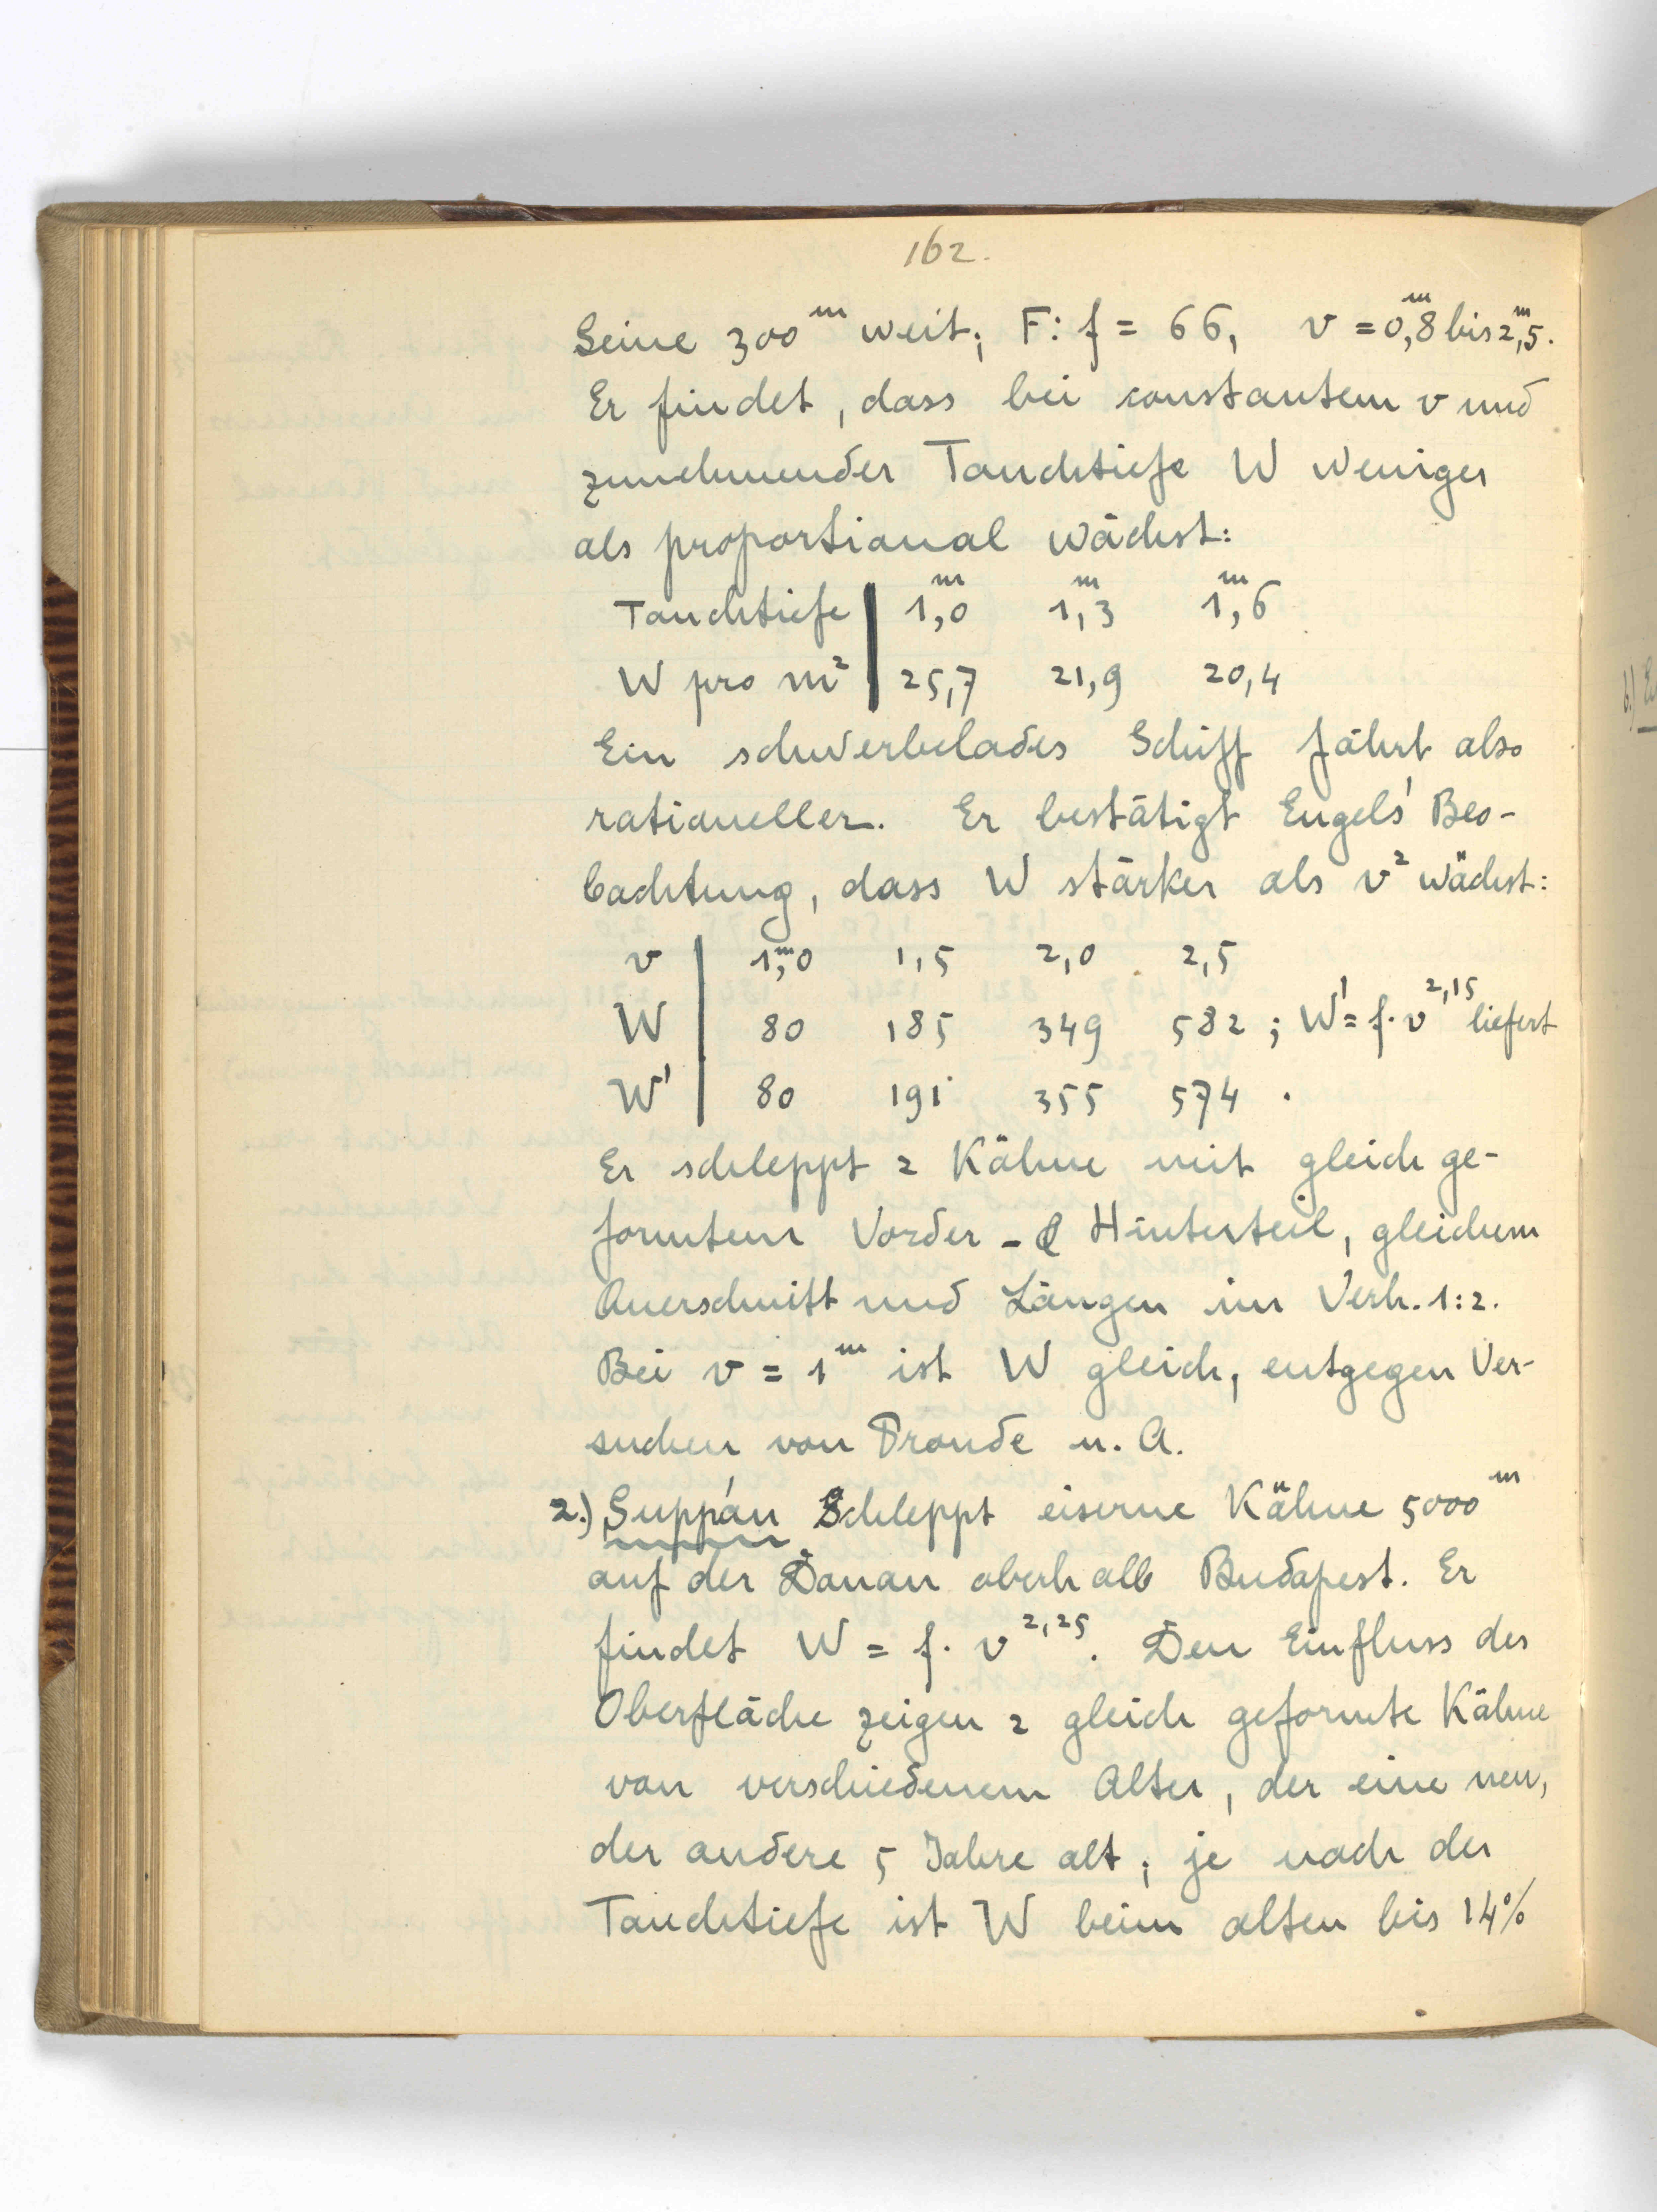 162.
Seine 300 m weit; F: f = 66, v = 0,8 m bis 2,5 m.
Er findet, dass bei constantem v und
zunehmender Tauchtiefe W weniger
als proportional wächst:
Tauchtiefe | 1,0 m 1,3 m 1,6 m
W pro m² | 25,7 21,9 20,4
Ein schwerbelades Schiff fährt also
rationeller. Er bestätigt Engels' Beo-
bachtung, dass W stärker als v² wächst:
v | 1,0 m 1,5 2,0 2,5
W | 80 185 349 582 ; W' = f. v^2,15 liefert
W' | 80 191 355 574 .
Er schleppt 2 Kähne mit gleich ge-
formtem Vorder- & Hinterteil, gleichem
Querschnitt und Längen im Verh. 1:2.
Bei v = 1 m ist W gleich, entgegen Ver-
suchen von Froude u. A.
2.) Suppán Schleppt eiserne Kähne 5000 m
auf der Donau oberhalb Budapest. Er
findet W = f. v^2,25. Den Einfluss der
Oberfläche zeigen 2 gleich geformte Kähne
von verschiedenem Alter, der eine neu,
der andere 5 Jahre alt; je nach der
Tauchtiefe ist W beim alten bis 14%